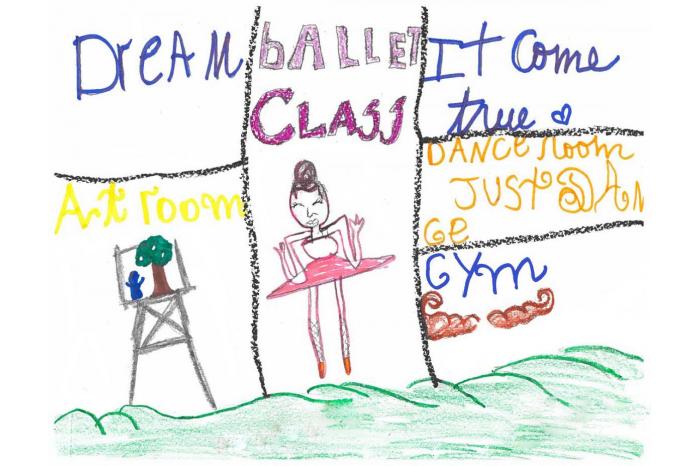 DreAM
Art room
bALLET
CLASS
It come
true
DANCE room
JUST DAN
Ce
Gym